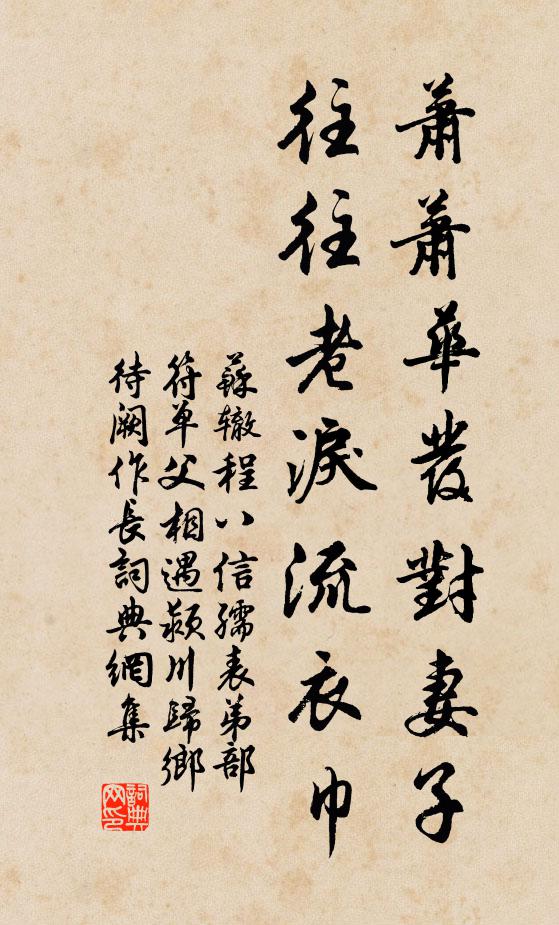 蕭蕭華發對妻子
往往老淚流衣巾
蘇辙程八信孺表弟部
符单父相遇颍川歸鄉
待阙作長詞典網集
詞典
网印